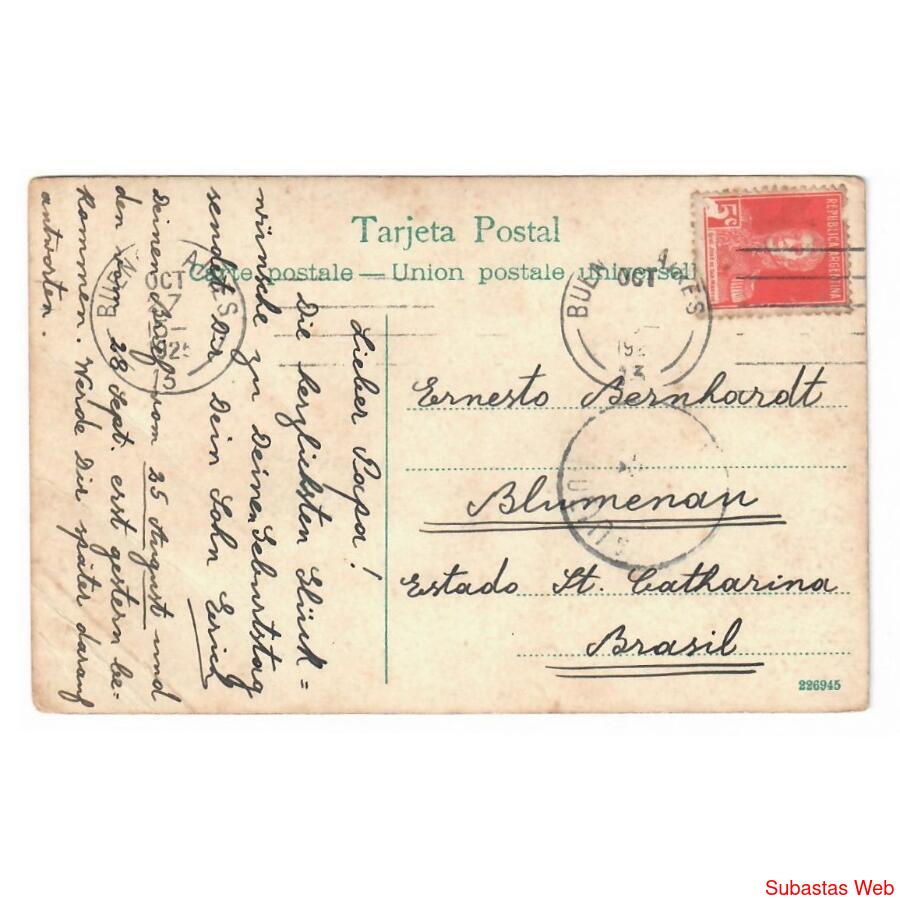 Tarjeta Postal
Carte postale — Union postale universelle
REPUBLICA ARGENTINA
5c
BUENOS AIRES
OCT
BUENOS AIRES
OCT
7
1925
Lieber Papa!
Die herzlichsten Glück=
wünsche zu Deinen Geburtstag
sendet Dir Dein Sohn Erich
Deinen Brief vom 25 August und
den vom 28 Sept. erst gestern be-
kommen. Werde Dir später darauf
antworten.
Ernesto Bernhardt
Blumenau
Estado St. Catharina
Brasil
226945
Subastas Web